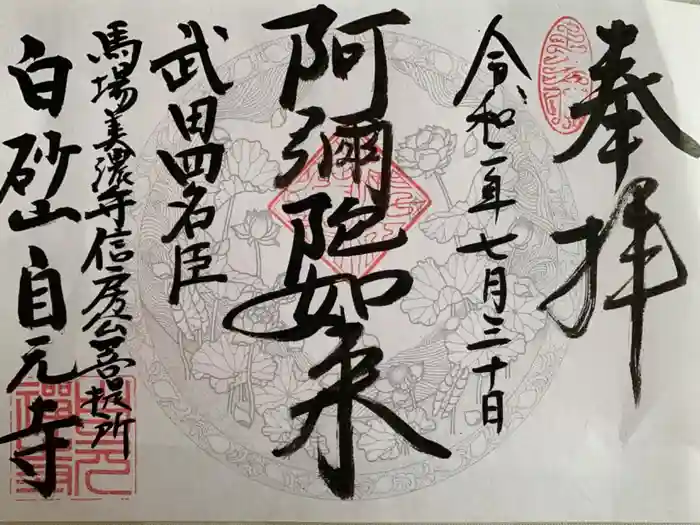 奉拝
令和二年七月三十日
阿彌陀如来
武田四名臣
馬場美濃守信房公菩提所
白砂山自元寺